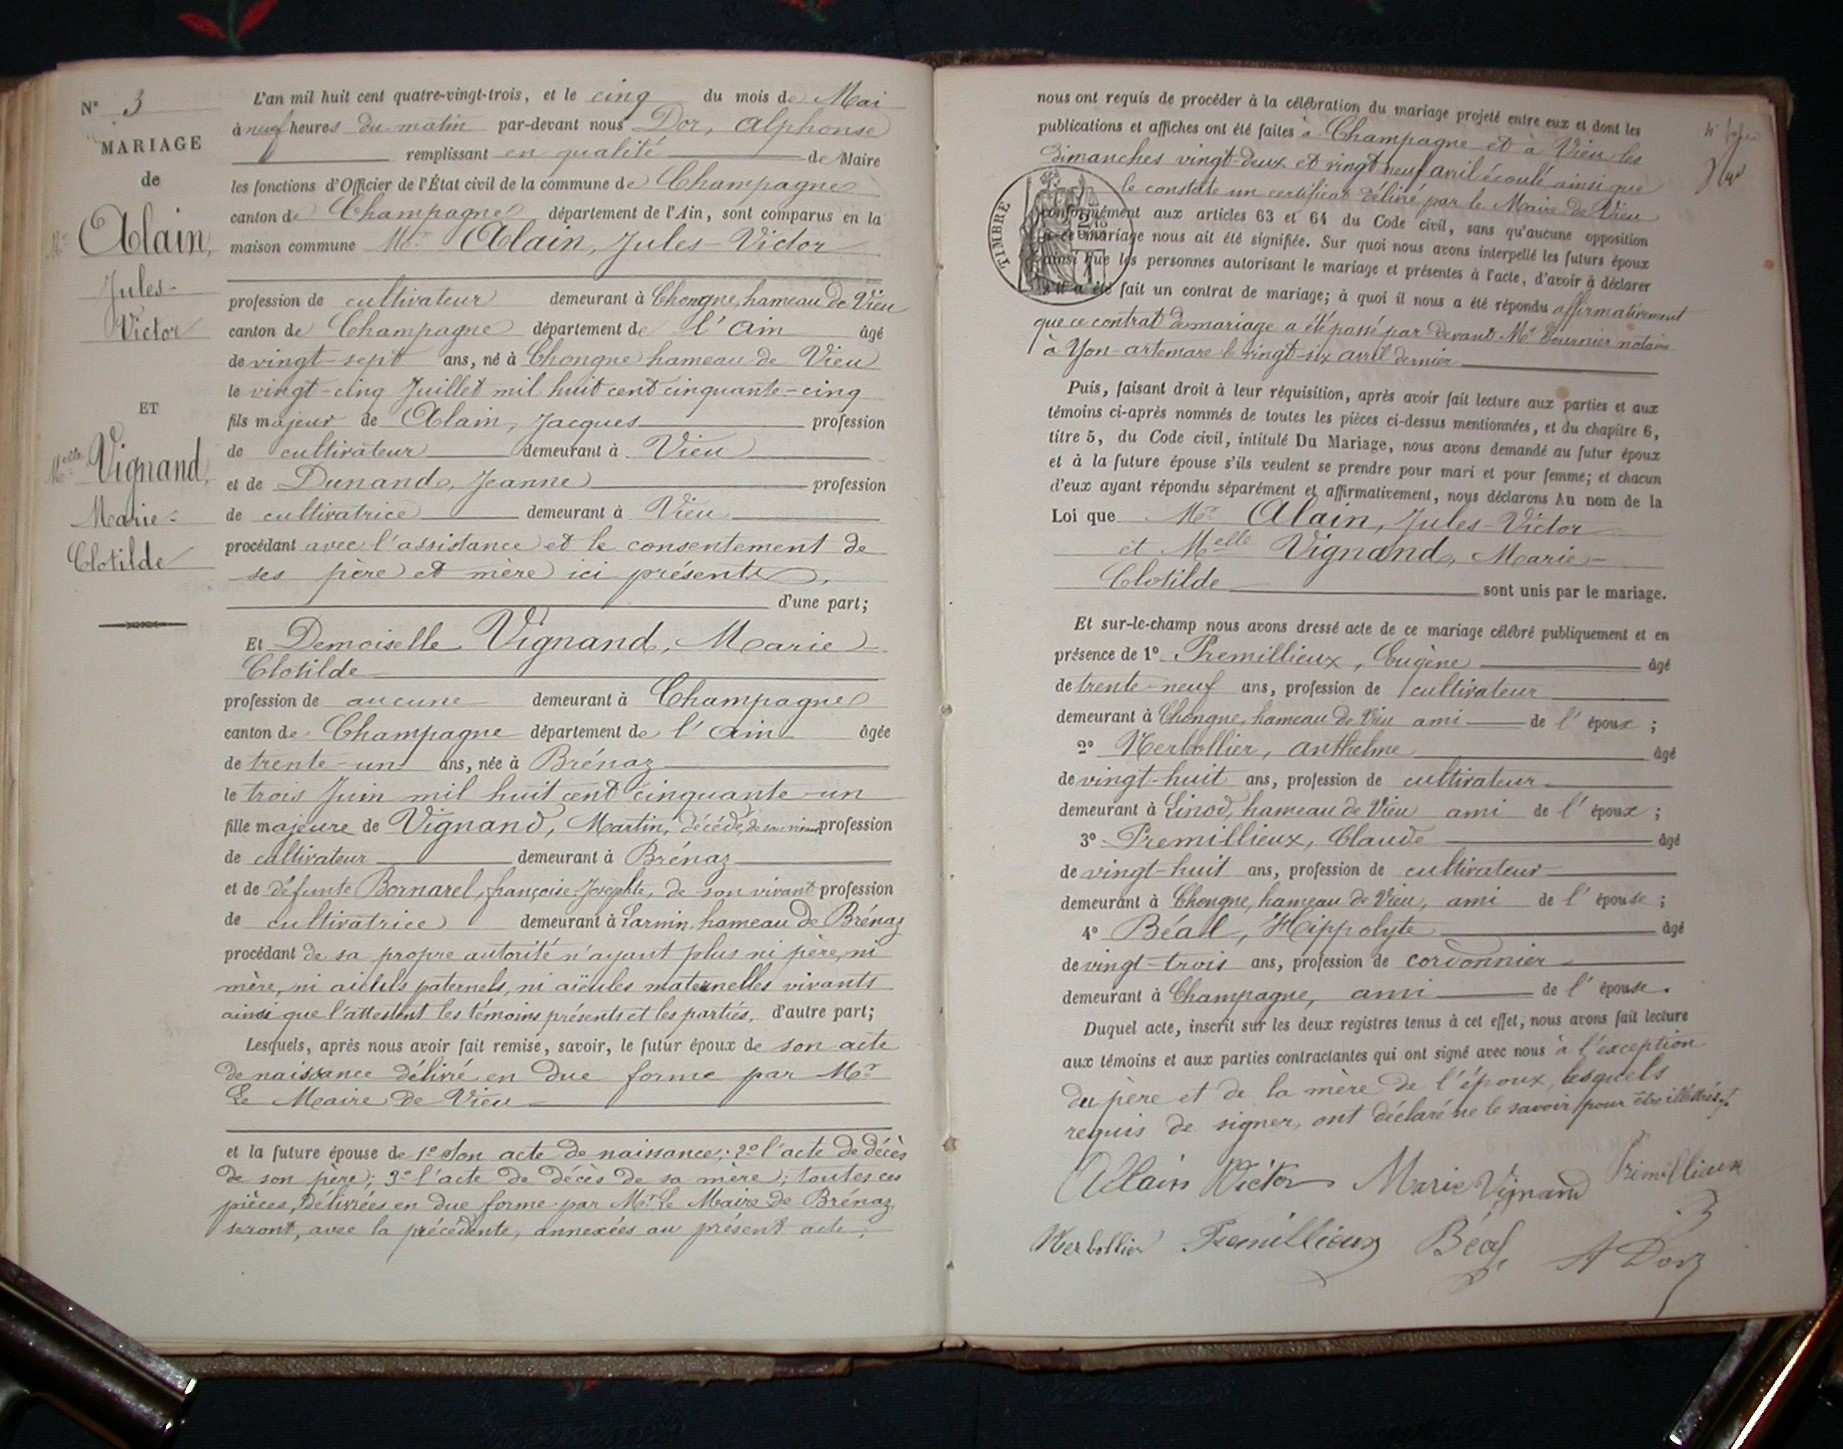 N° 3
MARIAGE
de
Mr Alain,
Jules-
Victor
ET
Melle Vignand,
Marie-
Clotilde
L'an mil huit cent quatre-vingt-trois, et le cinq du mois de Mai
à neuf heures du matin par-devant nous Dor, Alphonse
remplissant en qualité de Maire
les fonctions d'Officier de l'État civil de la commune de Champagne
canton de Champagne département de l'Ain, sont comparus en la
maison commune Mr Alain, Jules-Victor
profession de cultivateur demeurant à Chongne, hameau de Vieu
canton de Champagne département de l'Ain âgé
de vingt-sept ans, né à Chongne hameau de Vieu
le vingt-cinq Juillet mil huit cent cinquante-cinq
fils majeur de Alain, Jacques profession
de cultivateur demeurant à Vieu
et de Dunand, Jeanne profession
de cultivatrice demeurant à Vieu
procédant avec l'assistance et le consentement de
ses père et mère ici présents,
d'une part;
Et Demoiselle Vignand, Marie-
Clotilde
profession de aucune demeurant à Champagne
canton de Champagne département de l'Ain âgée
de trente-un ans, née à Brénaz
le trois Juin mil huit cent cinquante-un
fille majeure de Vignand, Martin, décédé, de son vivant profession
de cultivateur demeurant à Brénaz
et de défunte Bornarel, françoise-Josephte, de son vivant profession
de cultivatrice demeurant à Larnin, hameau de Brénaz
procédant de sa propre autorité n'ayant plus ni père, ni
mère, ni aïeuls paternels, ni aïeules maternelles vivants
ainsi que l'attestent les témoins présents et les parties, d'autre part;
Lesquels, après nous avoir fait remise, savoir, le futur époux de son acte
de naissance délivré en due forme par Mr
Le Maire de Vieu
et la future épouse de 1° son acte de naissance; 2° l'acte de décès
de son père; 3° l'acte de décès de sa mère; toutes ces
pièces, délivrées en due forme par Mr Le Maire de Brénaz,
seront, avec la précédente, annexées au présent acte;
nous ont requis de procéder à la célébration du mariage projeté entre eux et dont les
publications et affiches ont été faites à Champagne et à Vieu les
dimanches vingt-deux et vingt neuf avril écoulé ainsi que
le constate un certificat délivré par le Maire de Vieu
TIMBRE
conformément aux articles 63 et 64 du Code civil, sans qu'aucune opposition
à ce mariage nous ait été signifiée. Sur quoi nous avons interpellé les futurs époux
ainsi que les personnes autorisant le mariage et présentes à l'acte, d'avoir à déclarer
s'il a été fait un contrat de mariage; à quoi il nous a été répondu affirmativement
que ce contrat de mariage a été passé par devant Me Tournier notaire
à Yon-artemare le vingt-six avril dernier
Puis, faisant droit à leur réquisition, après avoir fait lecture aux parties et aux
témoins ci-après nommés de toutes les pièces ci-dessus mentionnées, et du chapitre 6,
titre 5, du Code civil, intitulé Du Mariage, nous avons demandé au futur époux
et à la future épouse s'ils veulent se prendre pour mari et pour femme; et chacun
d'eux ayant répondu séparément et affirmativement, nous déclarons Au nom de la
Loi que Mr Alain, Jules-Victor
et Melle Vignand, Marie-
Clotilde sont unis par le mariage.
Et sur-le-champ nous avons dressé acte de ce mariage célébré publiquement et en
présence de 1° Premillieux, Eugène âgé
de trente-neuf ans, profession de cultivateur
demeurant à Chongne, hameau de Vieu ami de l'époux;
2° Herbollier, anthelme âgé
de vingt-huit ans, profession de cultivateur
demeurant à Linod, hameau de Vieu ami de l'époux;
3° Premillieux, Claude âgé
de vingt-huit ans, profession de cultivateur
demeurant à Chongne, hameau de Vieu, ami de l'épouse;
4° Béal, Hippolyte âgé
de vingt-trois ans, profession de cordonnier
demeurant à Champagne, ami de l'épouse.
Duquel acte, inscrit sur les deux registres tenus à cet effet, nous avons fait lecture
aux témoins et aux parties contractantes qui ont signé avec nous à l'exception
du père et de la mère de l'époux, lesquels
requis de signer, ont déclaré ne le savoir pour être illettrés.
Allain Victor Marie Vignand Premillieux
Herbollier Premillieux Béal A Dor